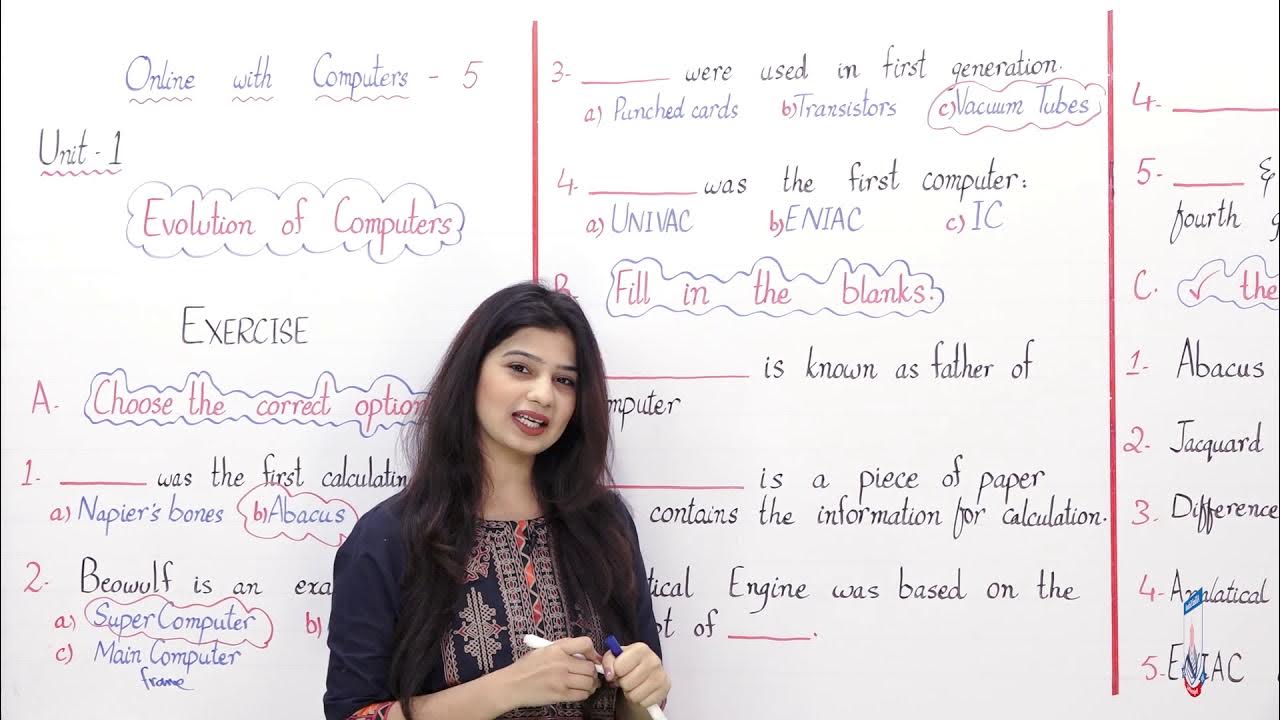 Online with Computers - 5
Unit - 1
Evolution of Computers
EXERCISE
A. Choose the correct option
1. ______ was the first calculatin
a) Napier's bones b) Abacus
2. Beowulf is an exa
a) Super Computer b)
c) Main Computer
frame
3- ______ were used in first generation.
a) Punched cards b) Transistors c) Vacuum Tubes
4. ______ was the first computer:
a) UNIVAC b) ENIAC c) IC
B. Fill in the blanks.
______ is known as father of
mputer
______ is a piece of paper
contains the information for calculation.
tical Engine was based on the
pt of ______.
4- ______
5- ______ &
fourth g
C. ✓ the
1. Abacus
2- Jacquard
3. Difference
4- Analatical
5- ENIAC